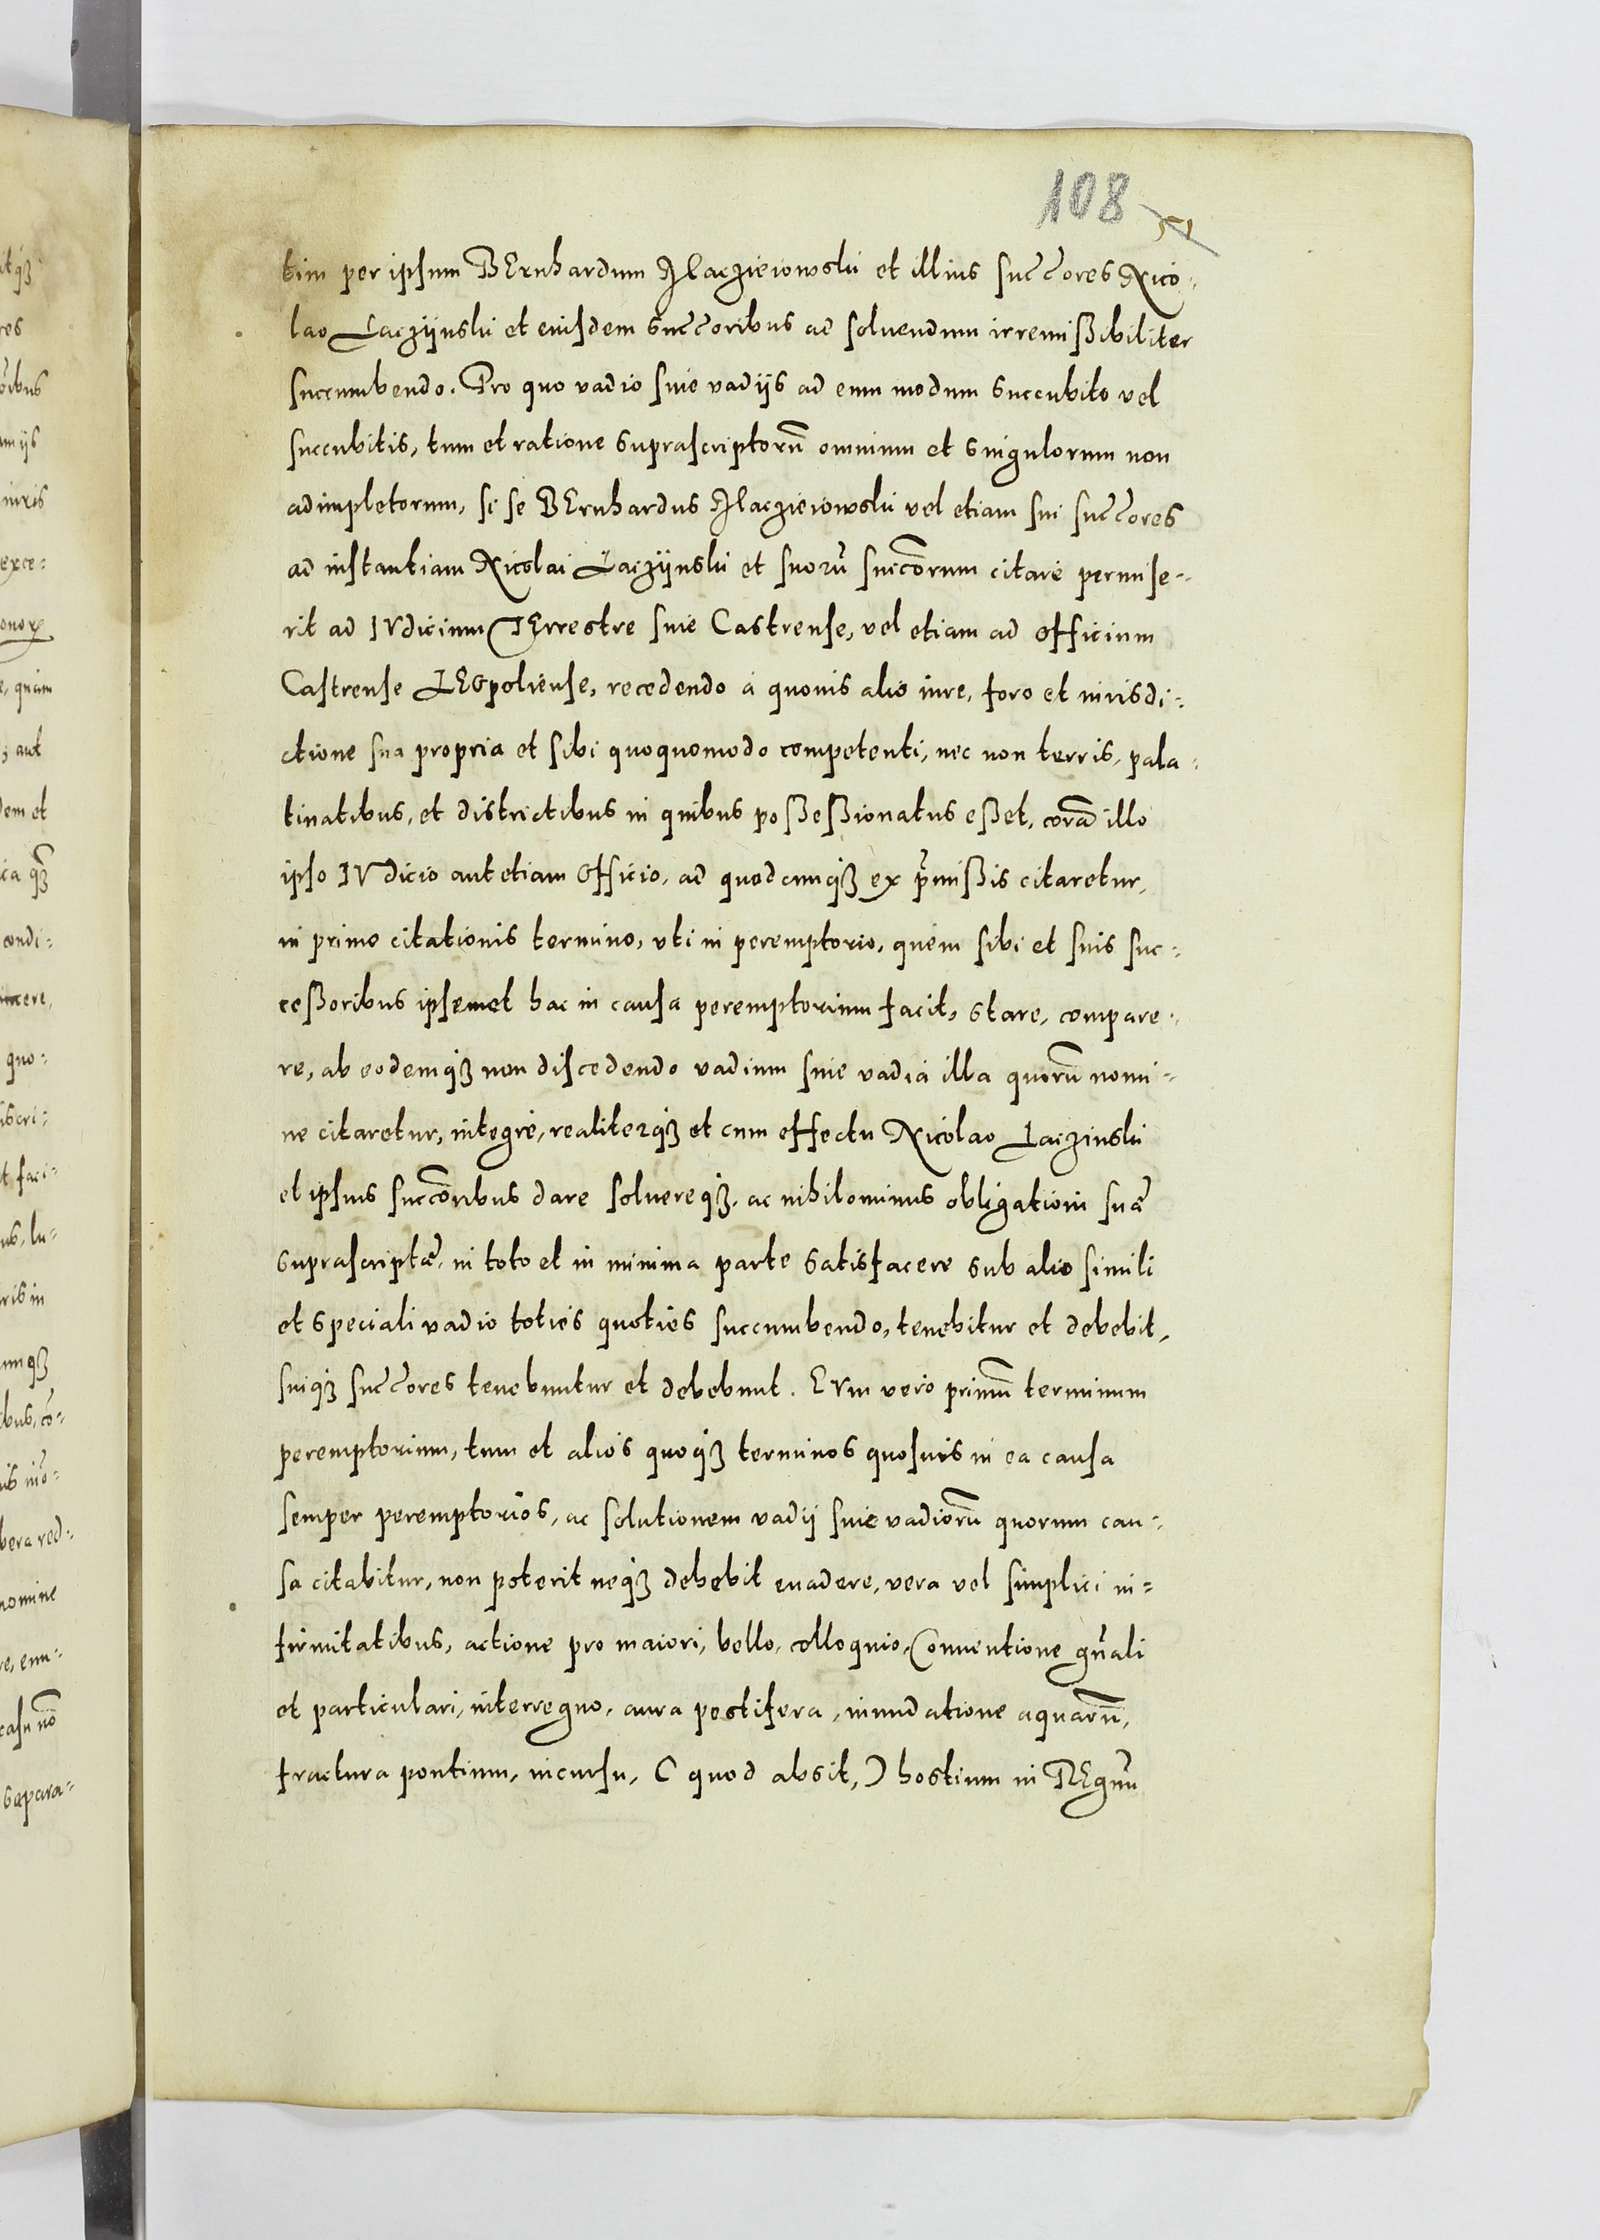 108 51
tim per ipsum BErnhardum Maczieiowski et illius succ͠ores Nico-
lao Łaczijnski et eiusdem succ͠oribus ad soluendum irremißibiliter
succumbendo. Pro quo vadio siue vadijs ad eum modum succubito vel
succubitis, tum et ratione suprascriptorũ omnium et singulorum non
adimpletorum, si se BErnhardus Maczieiowski vel etiam sui succ͠ores
ad instantiam Nicolai Łaczijnski et suorũ succ͠orum citare permise-
rit ad IVdicium TErrestre siue Castrense, vel etiam ad officium
Castrense LEOpoliense, recedendo á quouis alio iure, foro et iurisdi-
ctione sua propria et sibi quoquomodo competenti, nec non terris, pala-
tinatibus, et districtibus in quibus poßeßionatus eßet, corã illo
ipso IVdicio aut etiam Officio, ad quodcunqȝ ex p̃mißis citaretur,
in primo citationis termino, vti in peremptorio, quem sibi et suis suc-
ceßoribus ipsemet hac in causa peremptorium facit, stare, compare-
re, ab eodemqȝ non discedendo vadium siue vadia illa quorũ nomi-
ne citaretur, integrè, realiterqȝ et cum effectu Nicolao Łaczinski
et ipsius succ͠oribus dare soluereqȝ, ac nihilominus obligationi suæ
suprascriptæ, in toto et in minima parte satisfacere sub alio simili
et speciali vadio toties quoties succumbendo, tenebitur et debebit,
suiqȝ succ͠ores tenebuntur et debebunt. EVm vero primũ terminum
peremptorium, tum et alios quoqȝ terminos quosuis in ea causa
semper peremptorios, ac solutionem vadij siue vadiorũ quorum cau-
sa citabitur, non poterit neqȝ debebit euadere, vera vel simplici in-
firmitatibus, actione pro maiori, bello, colloquio, Conuentione gñali
et particulari, interregno, aura pestifera, inundatione aquarũ,
fractura pontium, incursu, ( quod absit, ) hostium in REgnũ